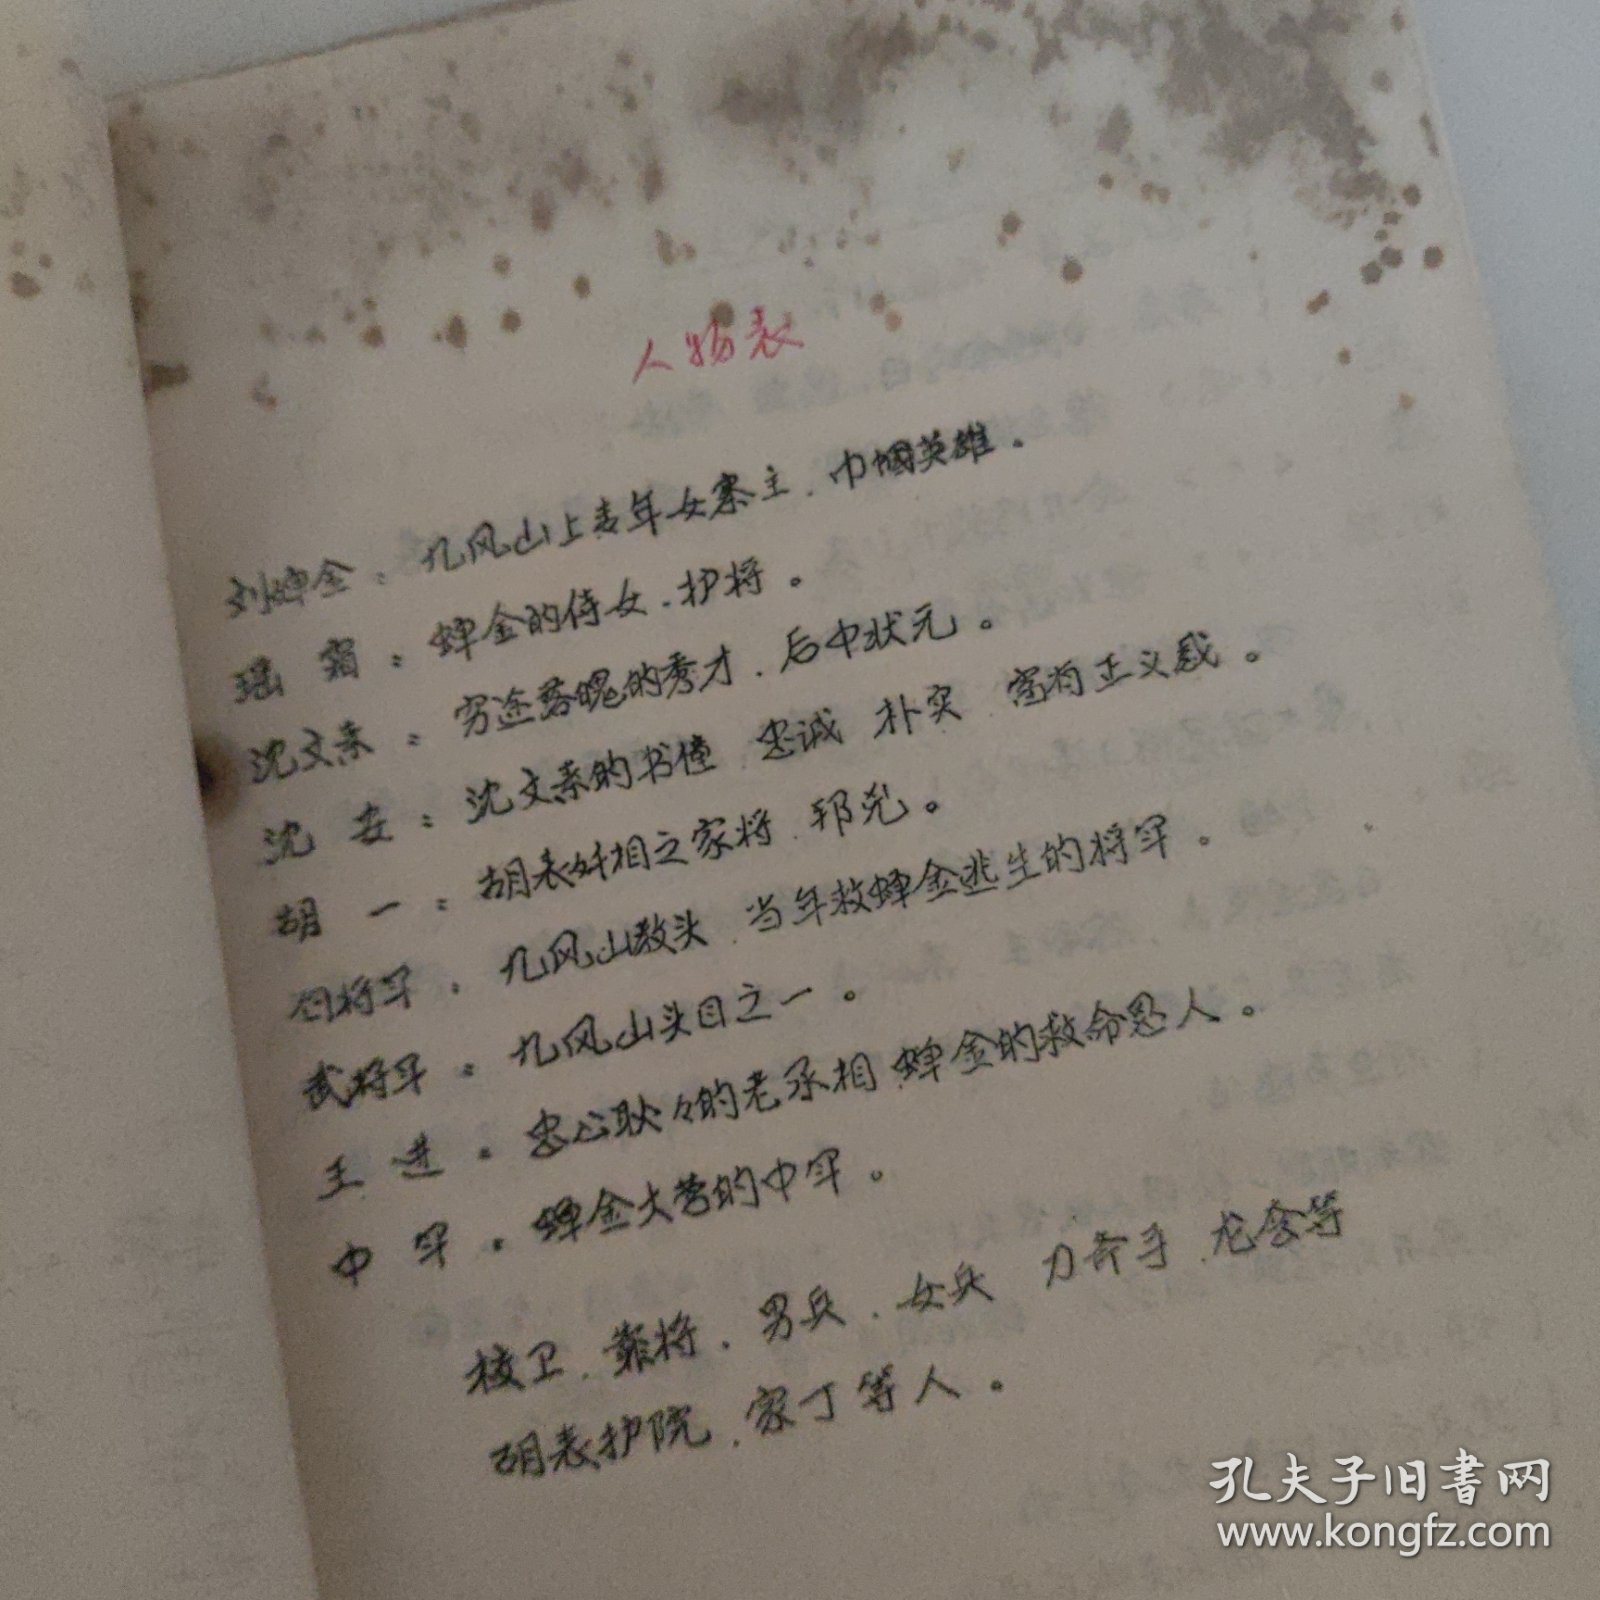 人物表
刘婵金：九凤山上青年女寨主、巾帼英雄。
瑶霜：婵金的侍女、护将。
沈文素：穷途落魄的秀才、后中状元。
沈安：沈文素的书僮 忠诚 朴实 富有正义感。
胡一：胡表奸相之家将、邪兇。
将军：九凤山教头、当年救婵金逃生的将军。
武将军：九凤山头目之一。
王进：忠心耿々的老丞相 婵金的救命恩人。
中军：婵金大营的中军。
校卫、靠将、男兵、女兵 刀斧手、龙套等
胡表护院、家丁等人。
孔夫子旧书网
www.kongfz.com